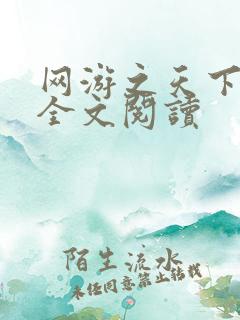 网游之天下
全文閱讀
陌生流水
未经同意禁止转载